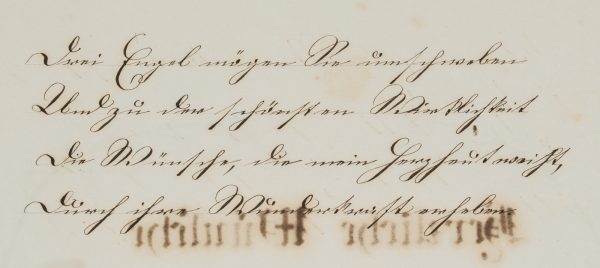 Drei Engel mögen Sie umschweben
Und zu der schönsten Wirklichkeit
Die Wünsche, die mein Herz heut weiht,
Durch ihre Wunderkraft erheben